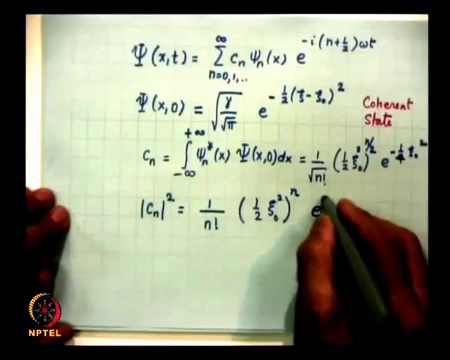 Ψ(x,t) = ∑_{n=0,1,..}^{∞} c_n ψ_n(x) e^{-i(n+½)ωt}
Ψ(x,0) = √(γ/√π) e^{-½(ξ-ξ₀)²} Coherent State
c_n = ∫_{-∞}^{+∞} ψ_n*(x) Ψ(x,0)dx = 1/√n! (½ ξ₀²)^{n/2} e^{-¼ξ₀²}
|c_n|² = 1/n! (½ ξ₀²)^n e
NPTEL